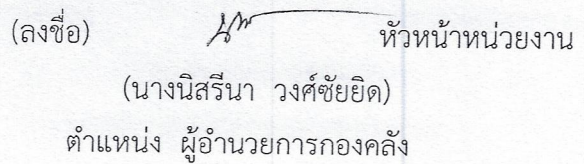 (ลงชื่อ) หัวหน้าหน่วยงาน
(นางนิสรีนา วงศ์ซัยยิด)
ตำแหน่ง ผู้อำนวยการกองคลัง